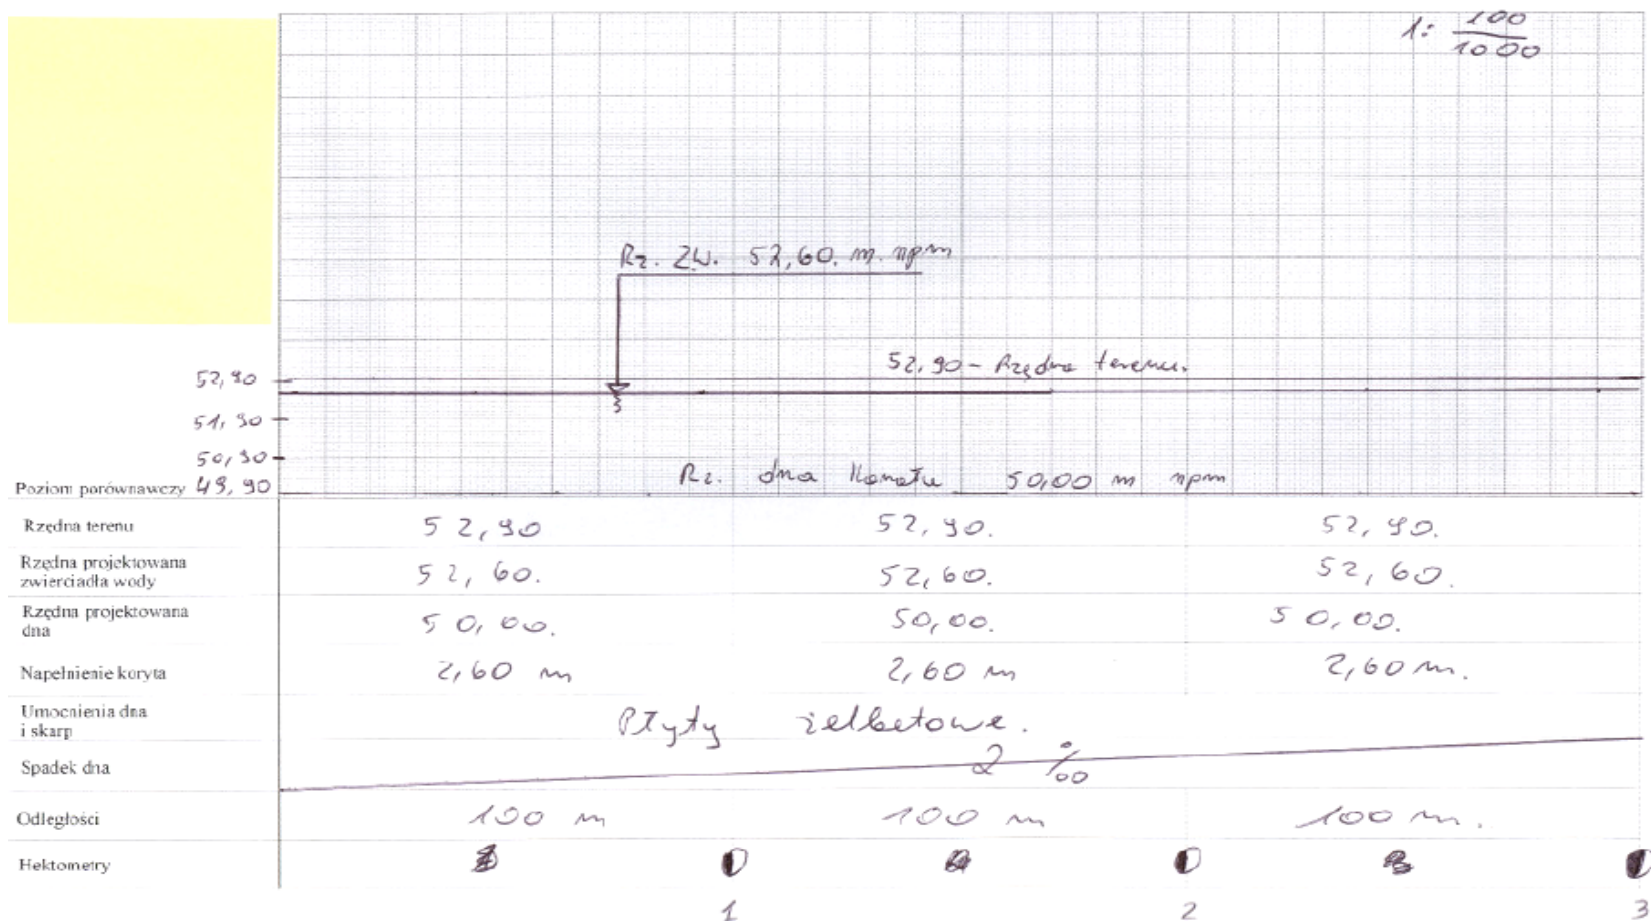 1: 100/1000
Rz. ZW. 52,60. m. npm
52,90 - Rzędna terenu.
52,90
51,90
50,90
Rz. dna Kanału 50,00 m npm
Poziom porównawczy 49,90
Rzędna terenu 52,90 52,90. 52,90.
Rzędna projektowana
zwierciadła wody 52,60. 52,60. 52,60.
Rzędna projektowana
dna 50,00. 50,00. 50,00.
Napełnienie koryta 2,60 m 2,60 m 2,60 m.
Umocnienia dna
i skarp Płyty żelbetowe.
Spadek dna 2 ‰
Odległości 100 m 100 m 100 m.
Hektometry
1 2 3